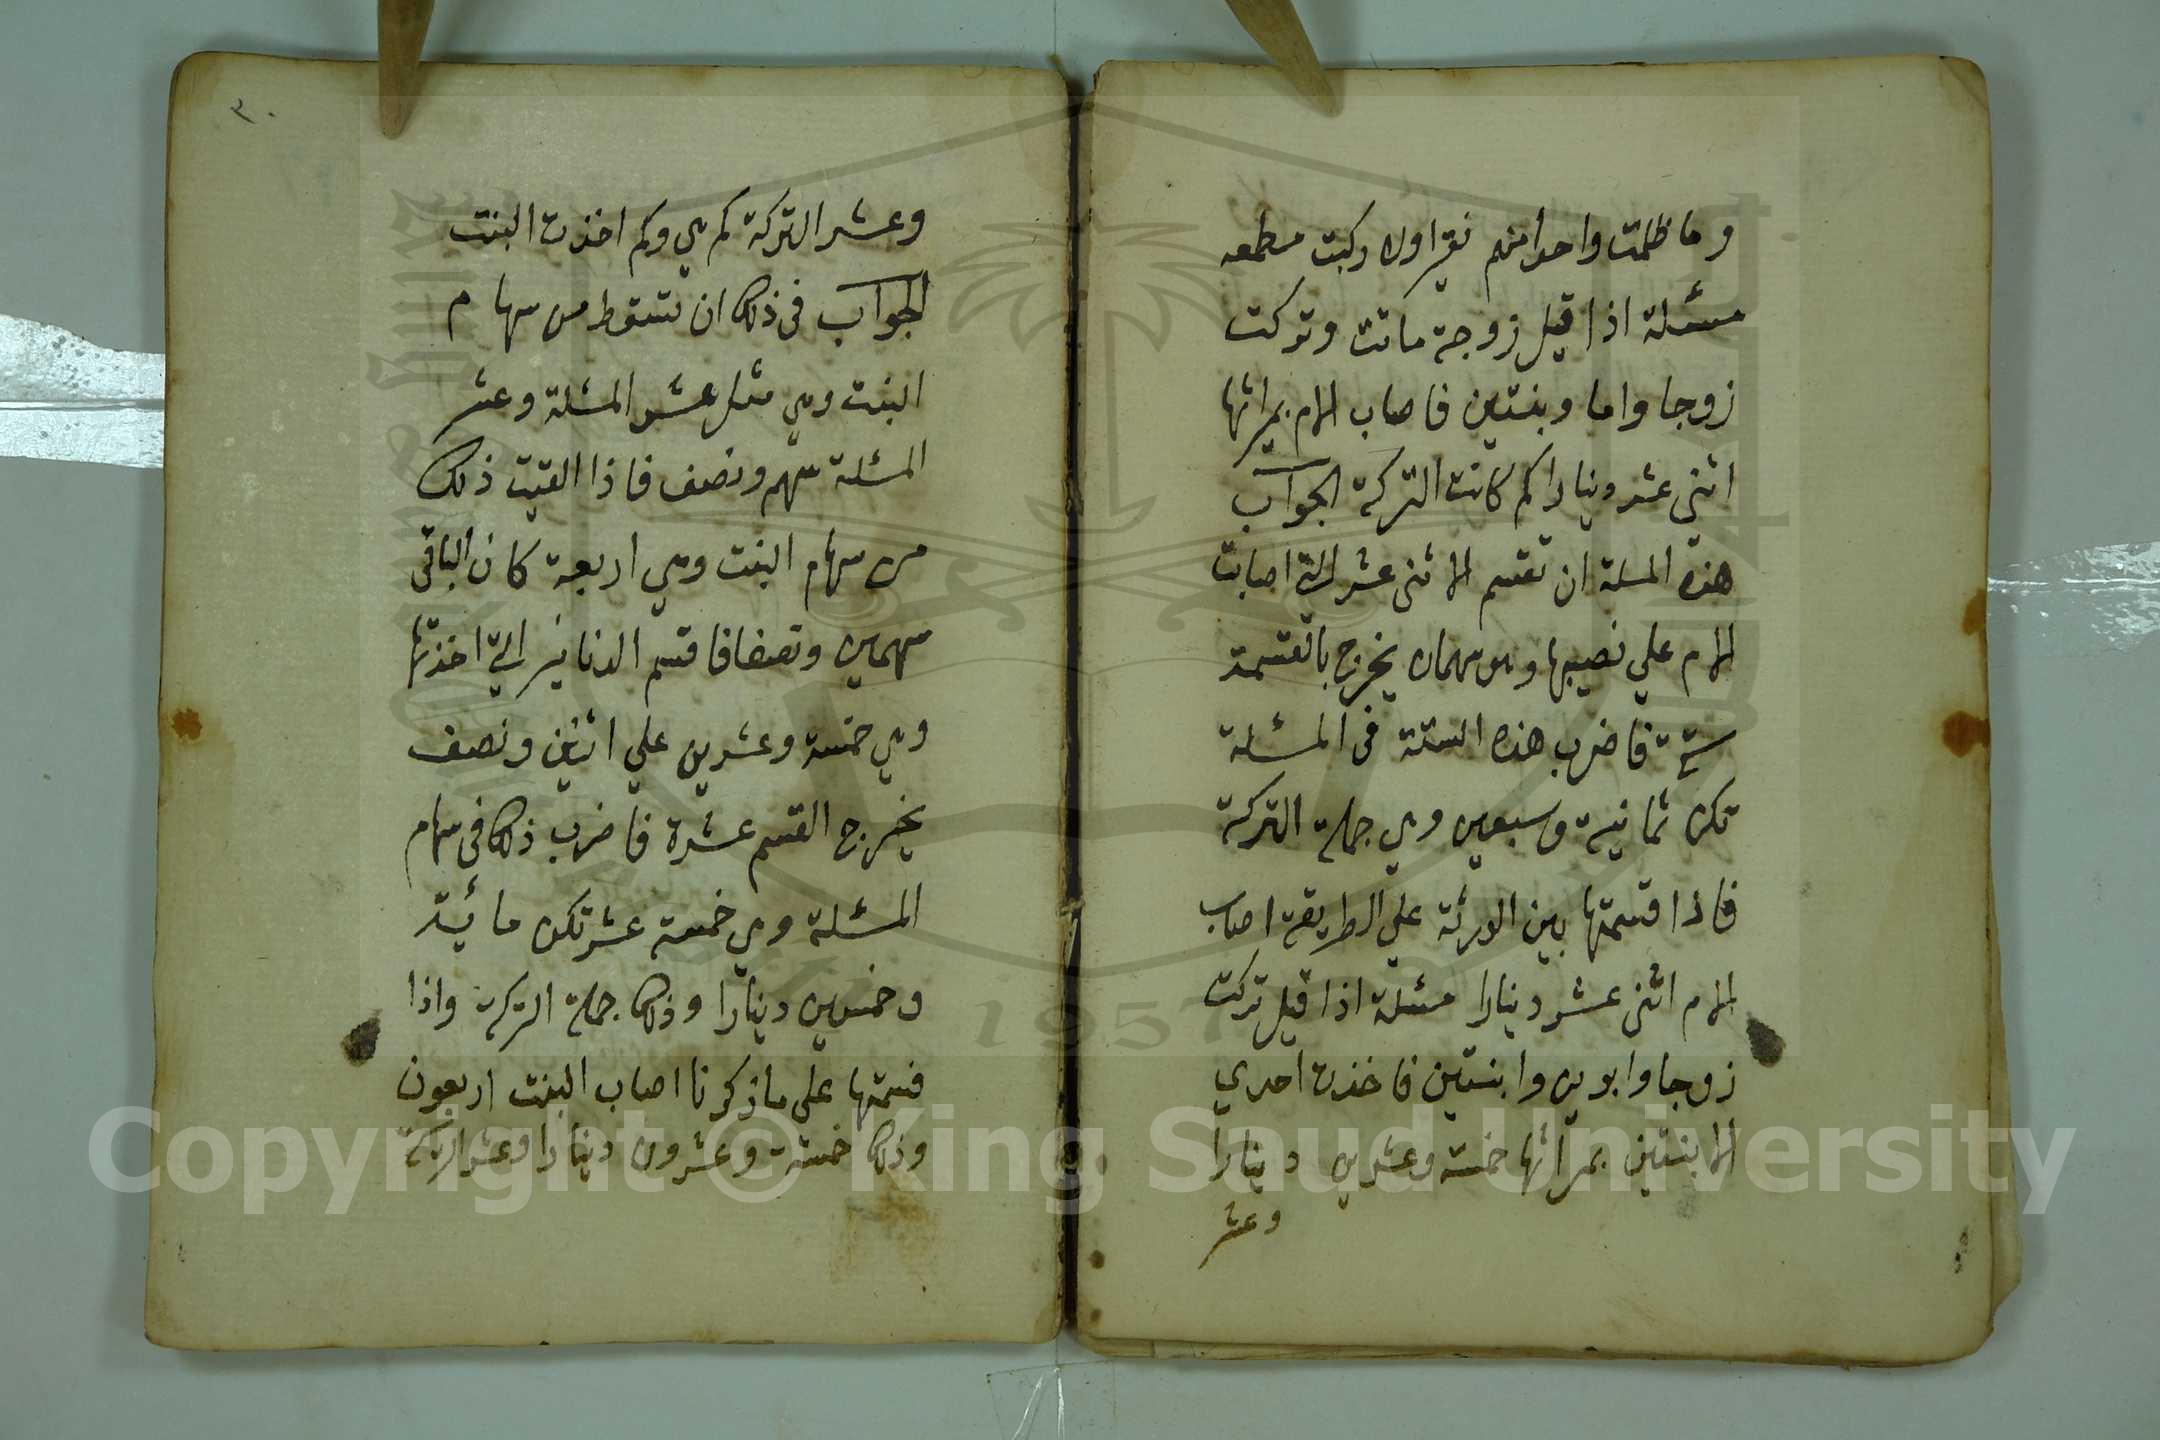 وما ظلمت واحدا منهم نقيرا ولا ركبت مطمعه
مسئلة اذا قيل زوجة ماتت وتركت
زوجا واما وبنتين فاصاب الام بميراثها
اثنى عشر دينارا كم كانت التركة الجواب
هذه المسلة ان تقسم الاثنى عشر التي اصابت
الام علي نصيبها وهو سهمان يخرج بالقسمة
ستة فاضرب هذه الستة فى المسئلة
تكن ثمانية وسبعين وهي جملة التركة
فاذا قسمتها بين الورثة علي الطريقة اصاب
الام اثنى عشر دينارا مسئلة اذا قيل تركت
زوجا وابوين وابنتين فاخذت احدي
الابنتين بميراثها خمسة وعشرين دينارا
وعشر
٣٠
وعشر التركة كم هي وكم اخذت البنت
الجواب فى ذلك ان تسقط من سهام
البنت وهي مثل عشر المسئلة وعشر
المسئلة سهم ونصف فاذا القيت ذلك
من سهام البنت وهي اربعة كان الباقى
سهمين ونصفا فاقسم الدنانير التي اخذتها
وهي خمسة وعشرين علي اثنين ونصف
يخرج القسم عشرة فاضرب ذلك فى سهام
المسئلة وهي خمسة عشر تكن مائية
وخمسين دينارا وذلك جملة التركة واذا
قسمتها على ما ذكرنا اصاب البنت اربعون
وذلك خمسة وعشرون دينارا وعشر التركة
1957
Copyright © King Saud University